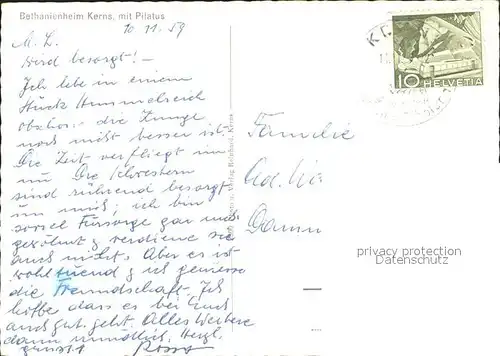 Bethanienheim Kerns, mit Pilatus
10 11. 59
M. L.
Wird besorgt! -
Ich lebe in einem
Stück Himmelreich
obschon die Lunge
noch nicht besser ist.
Die Zeit verfliegt im
nu. Die Schwestern
sind rührend besorgt
um mich; ich bin
soviel Fürsorge gar nicht
gewöhnt & verdiene sie
auch nicht. Aber es ist
wohltuend & ich geniesse
die Freundschaft. Ich
hoffe dass es bei Euch
auch gut geht. Alles Weitere
dann mündlich. Herzl.
grüsst
Familie
Ad.
Damm
10 HELVETIA
privacy protection
Datenschutz